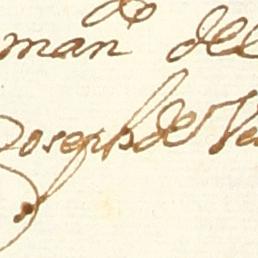 man del
Joseph de Ve